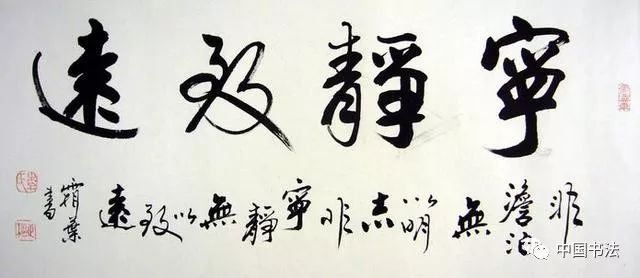 寧靜致遠
非澹泊無以明志非寧靜無以致遠
霜葉書
中国书法